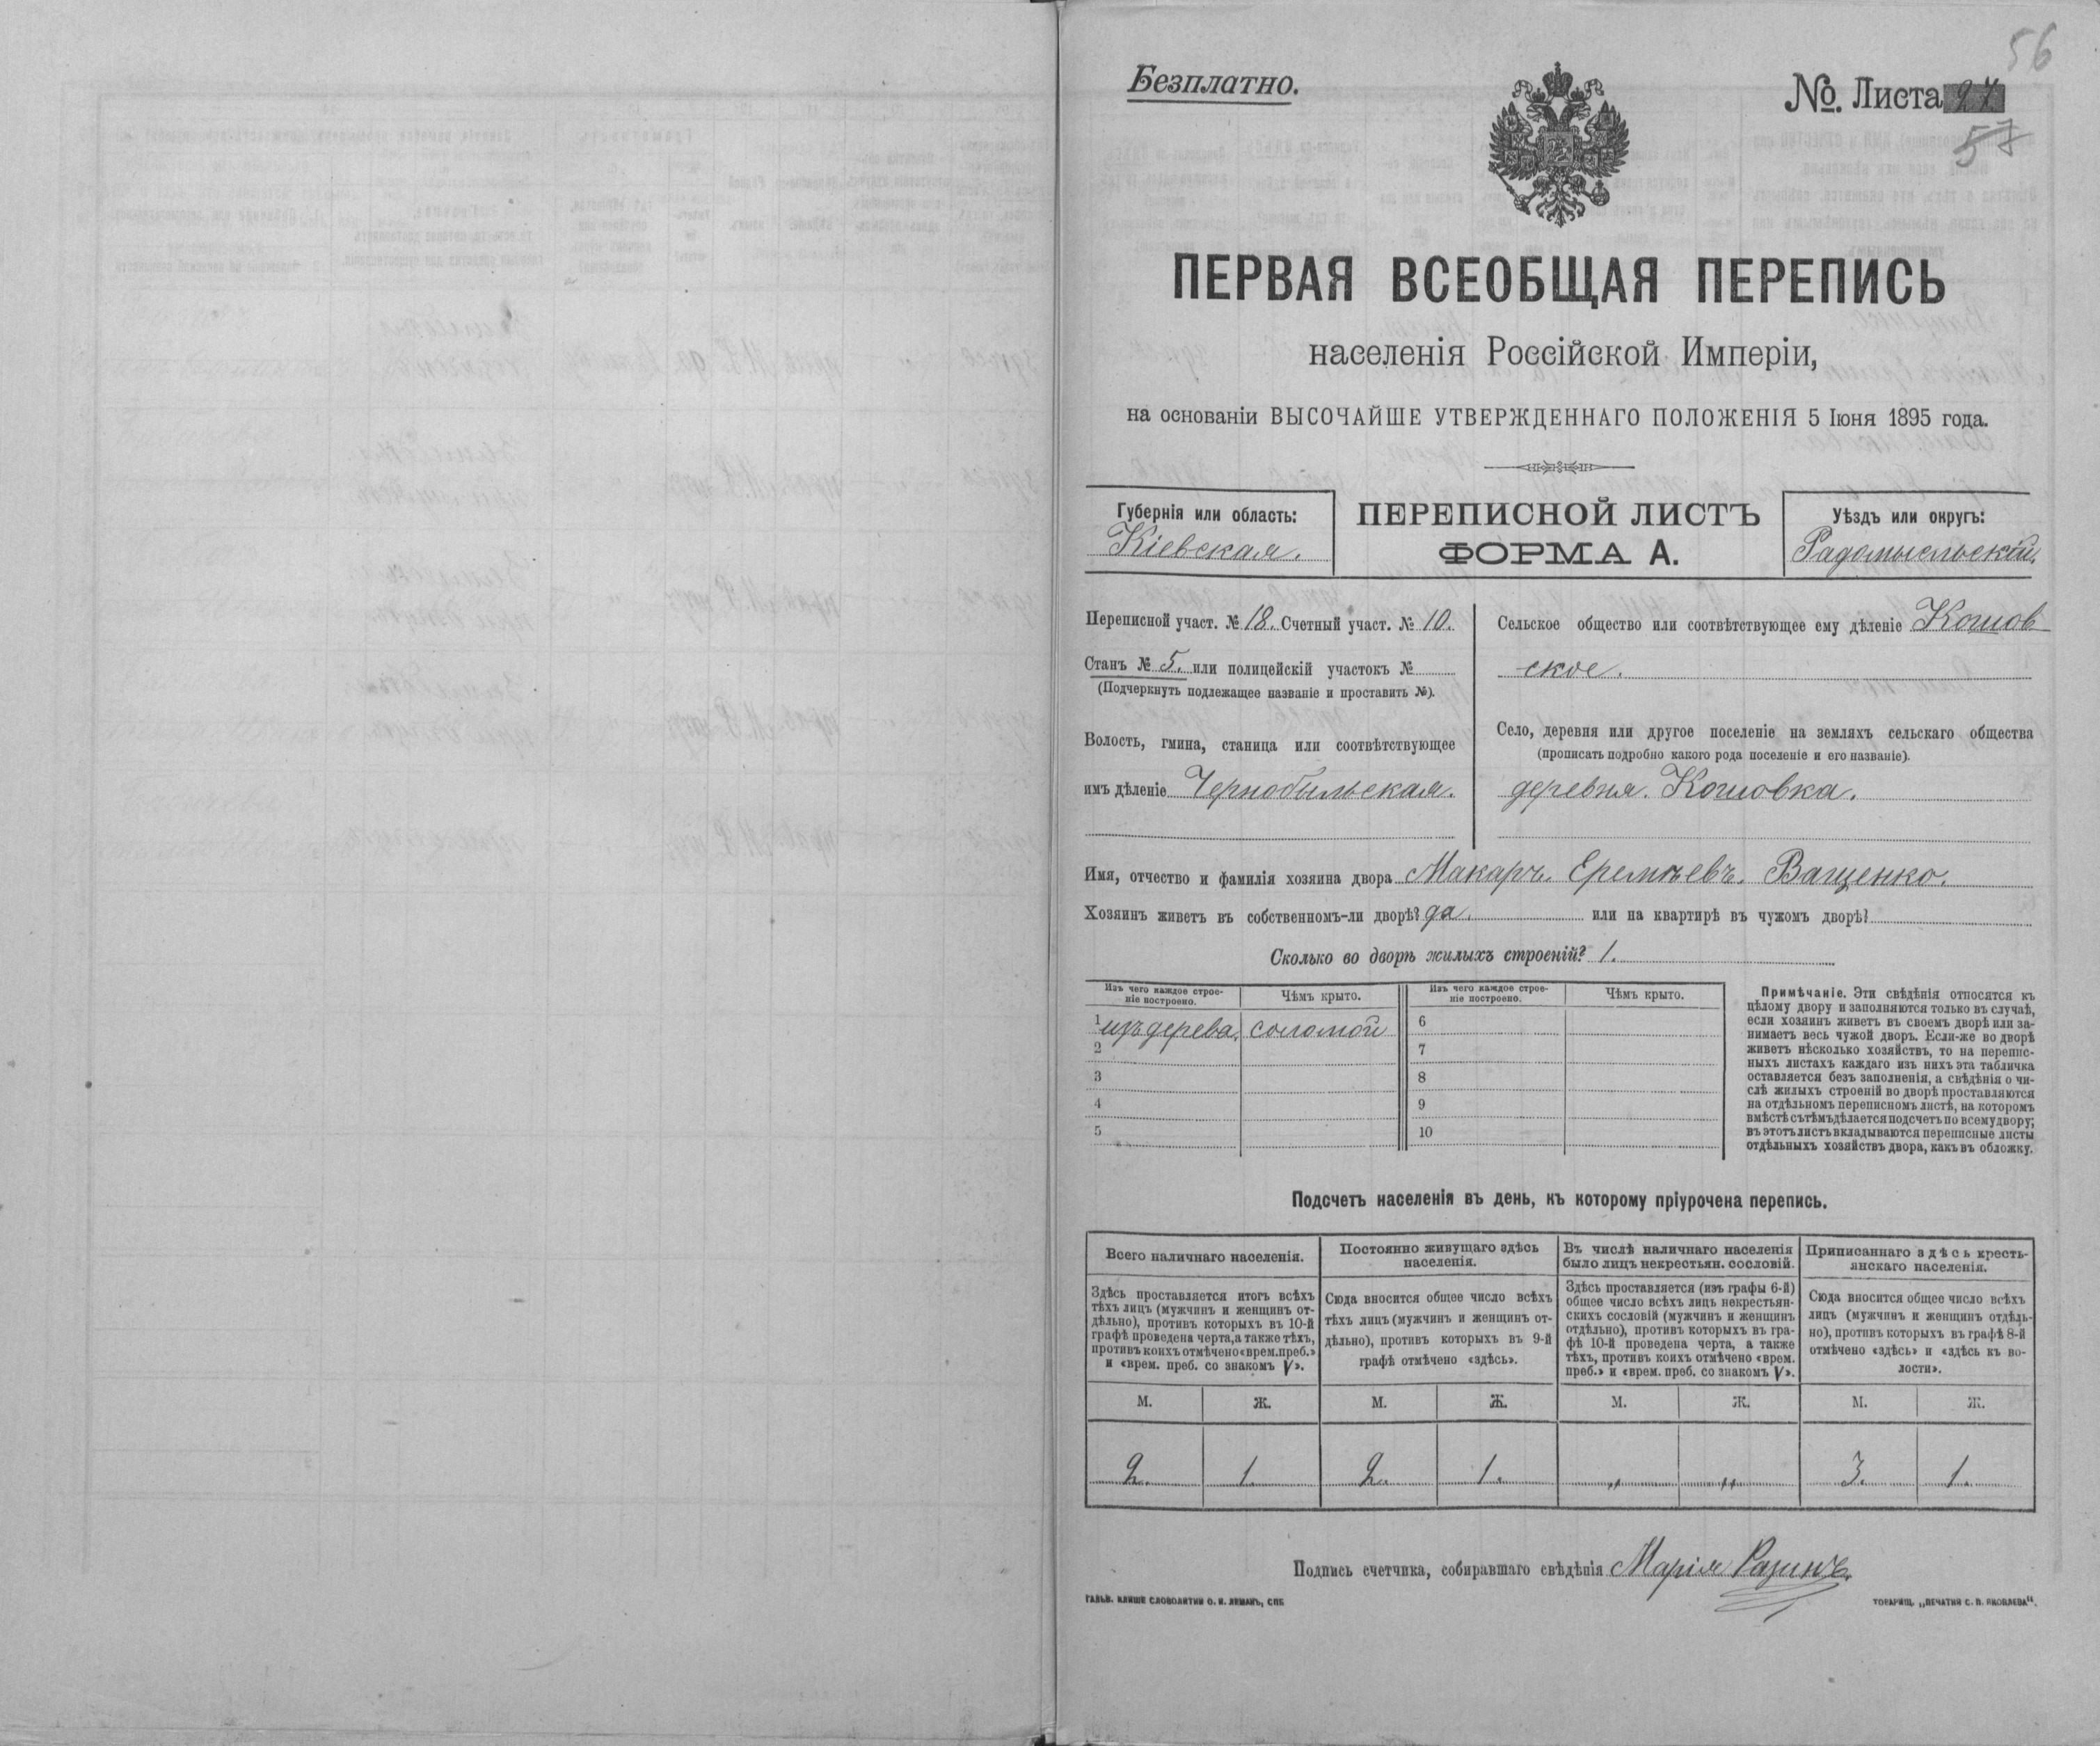 56
Безплатно.
№. Листа 24.
57
ПЕРВАЯ ВСЕОБЩАЯ ПЕРЕПИСЬ
населенія Россійской Имперіи,
на основаніи ВЫСОЧАЙШЕ УТВЕРЖДЕННАГО ПОЛОЖЕНІЯ 5 Іюня 1895 года.
Губернія или область:
Кіевская.
ПЕРЕПИСНОЙ ЛИСТЪ
ФОРМА А.
Уѣздъ или округъ:
Радомысльскій.
Переписной участ. № 18. Счетный участ. № 10.
Станъ № 5. или полицейскій участокъ №
(Подчеркнуть подлежащее названіе и проставить №).
Волость, гмина, станица или соотвѣтствующее
имъ дѣленіе Чернобыльская.
Сельское общество или соотвѣтствующее ему дѣленіе Кошов-
ское.
Село, деревня или другое поселеніе на земляхъ сельскаго общества
(прописать подробно какого рода поселеніе и его названіе).
деревня. Кошовка.
Имя, отчество и фамилія хозяина двора Макаръ. Еремѣевъ. Ващенко.
Хозяинъ живетъ въ собственномъ-ли дворѣ? да. или на квартирѣ въ чужомъ дворѣ?
Сколько во дворѣ жилыхъ строеній? 1.
Изъ чего каждое строе-
ніе построено.
Чѣмъ крыто.
1 изъ дерева. соломой
2
3
4
5
Изъ чего каждое строе-
ніе построено.
Чѣмъ крыто.
6
7
8
9
10
Примѣчаніе. Эти свѣдѣнія относятся къ
цѣлому двору и заполняются только въ случаѣ,
если хозяинъ живетъ въ своемъ дворѣ или за-
нимаетъ весь чужой дворъ. Если-же во дворѣ
живетъ нѣсколько хозяйствъ, то на перепис-
ныхъ листахъ каждаго изъ нихъ эта табличка
оставляется безъ заполненія, а свѣдѣнія о чи-
слѣ жилыхъ строеній во дворѣ проставляются
на отдѣльномъ переписномъ листѣ, на которомъ
вмѣстѣ съ тѣмъ дѣлается подсчетъ по всему двору;
въ этотъ листъ вкладываются переписные листы
отдѣльныхъ хозяйствъ двора, какъ въ обложку.
Подсчетъ населенія въ день, къ которому пріурочена перепись.
Всего наличнаго населенія.
Здѣсь проставляется итогъ всѣхъ
тѣхъ лицъ (мужчинъ и женщинъ от-
дѣльно), противъ которыхъ въ 10-й
графѣ проведена черта, а также тѣхъ,
противъ коихъ отмѣчено «врем. преб.»
и «врем. преб. со знакомъ V».
Постоянно живущаго здѣсь
населенія.
Сюда вносится общее число всѣхъ
тѣхъ лицъ (мужчинъ и женщинъ от-
дѣльно), противъ которыхъ въ 9-й
графѣ отмѣчено «здѣсь».
Въ числѣ наличнаго населенія
было лицъ некрестьян. сословій.
Здѣсь проставляется (изъ графы 6-й)
общее число всѣхъ лицъ некрестьян-
скихъ сословій (мужчинъ и женщинъ
отдѣльно), противъ которыхъ въ гра-
фѣ 10-й проведена черта, а также
тѣхъ, противъ коихъ отмѣчено «врем.
преб.» и «врем. преб. со знакомъ V».
Приписаннаго здѣсь кресть-
янскаго населенія.
Сюда вносится общее число всѣхъ
лицъ (мужчинъ и женщинъ отдѣль-
но), противъ которыхъ въ графѣ 8-й
отмѣчено «здѣсь» и «здѣсь къ во-
лости».
М. Ж. М. Ж. М. Ж. М. Ж.
2. 1. 2. 1. „ „ 3. 1.
Подпись счетчика, собиравшаго свѣдѣнія Марія Разинъ.
ГАЛЬВ. КЛИШЕ СЛОВОЛИТНИ О. И. ЛЕМАНЪ, СПБ
ТОВАРИЩ. „ПЕЧАТНЯ С. П. ЯКОВЛЕВА".